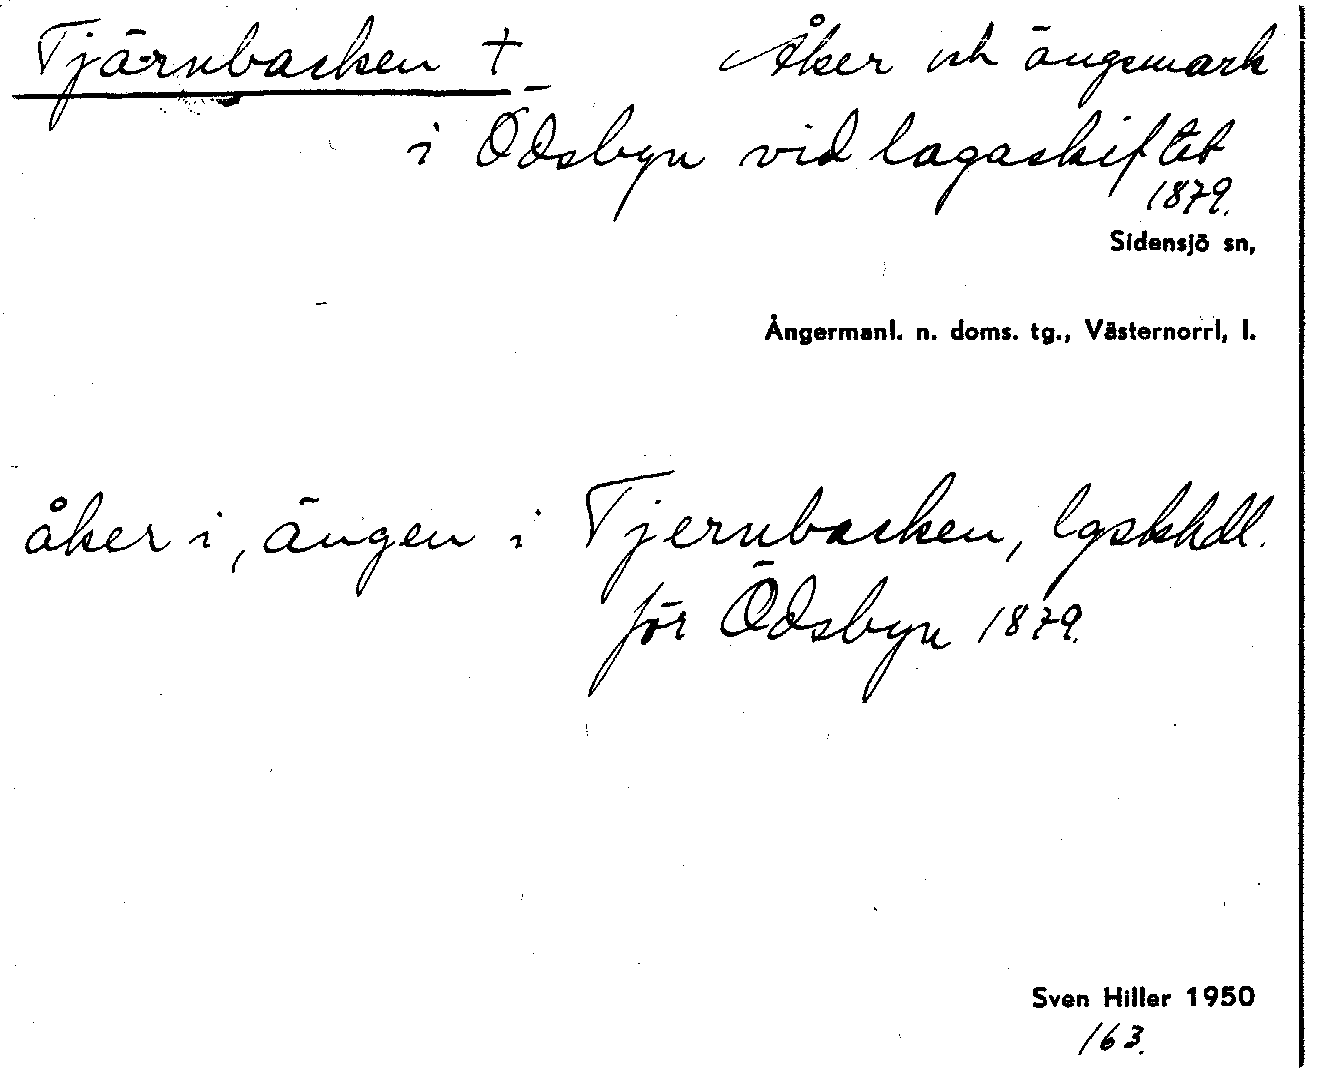 Tjärnbacken † Åker och ängsmark
i Ödsbyn vid lagaskiftet
1879.
Sidensjö sn,
Ångermanl. n. doms. tg., Västernorrl, l.
åker i, ängen i Tjernbacken, lgskhdl.
för Ödsbyn 1879.
Sven Hiller 1950
163.